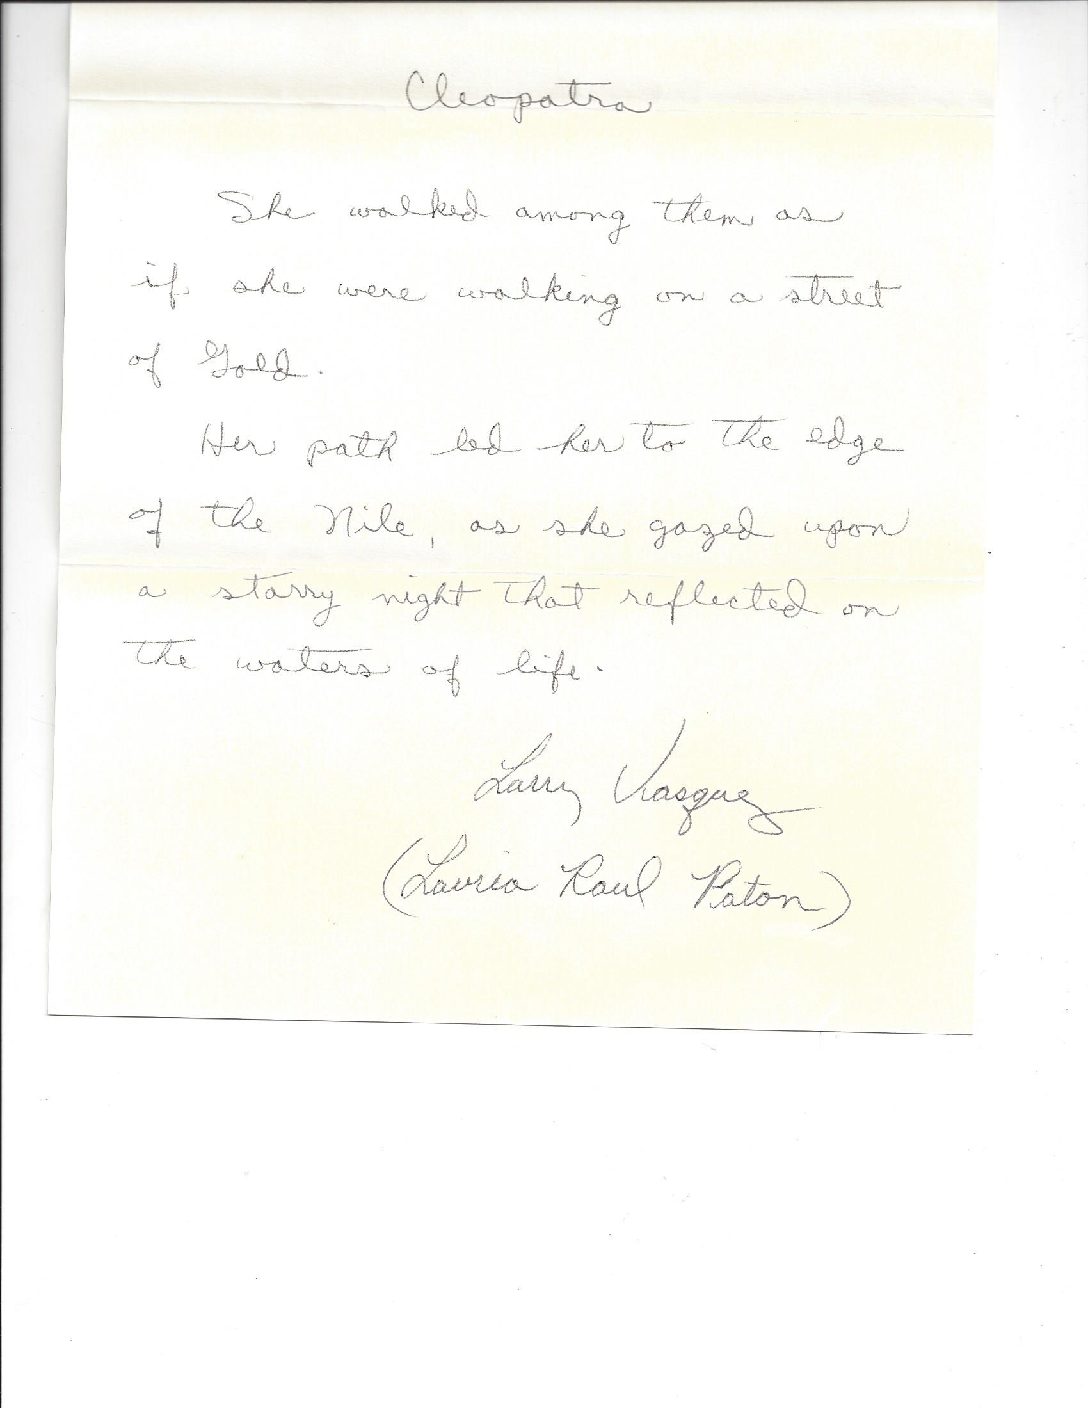 Cleopatra
She walked among them as
if she were walking on a street
of Gold.
Her path led her to the edge
of the Nile, as she gazed upon
a starry night that reflected on
the waters of life.
Larry Vasquez
(Lauria Raul Paton)